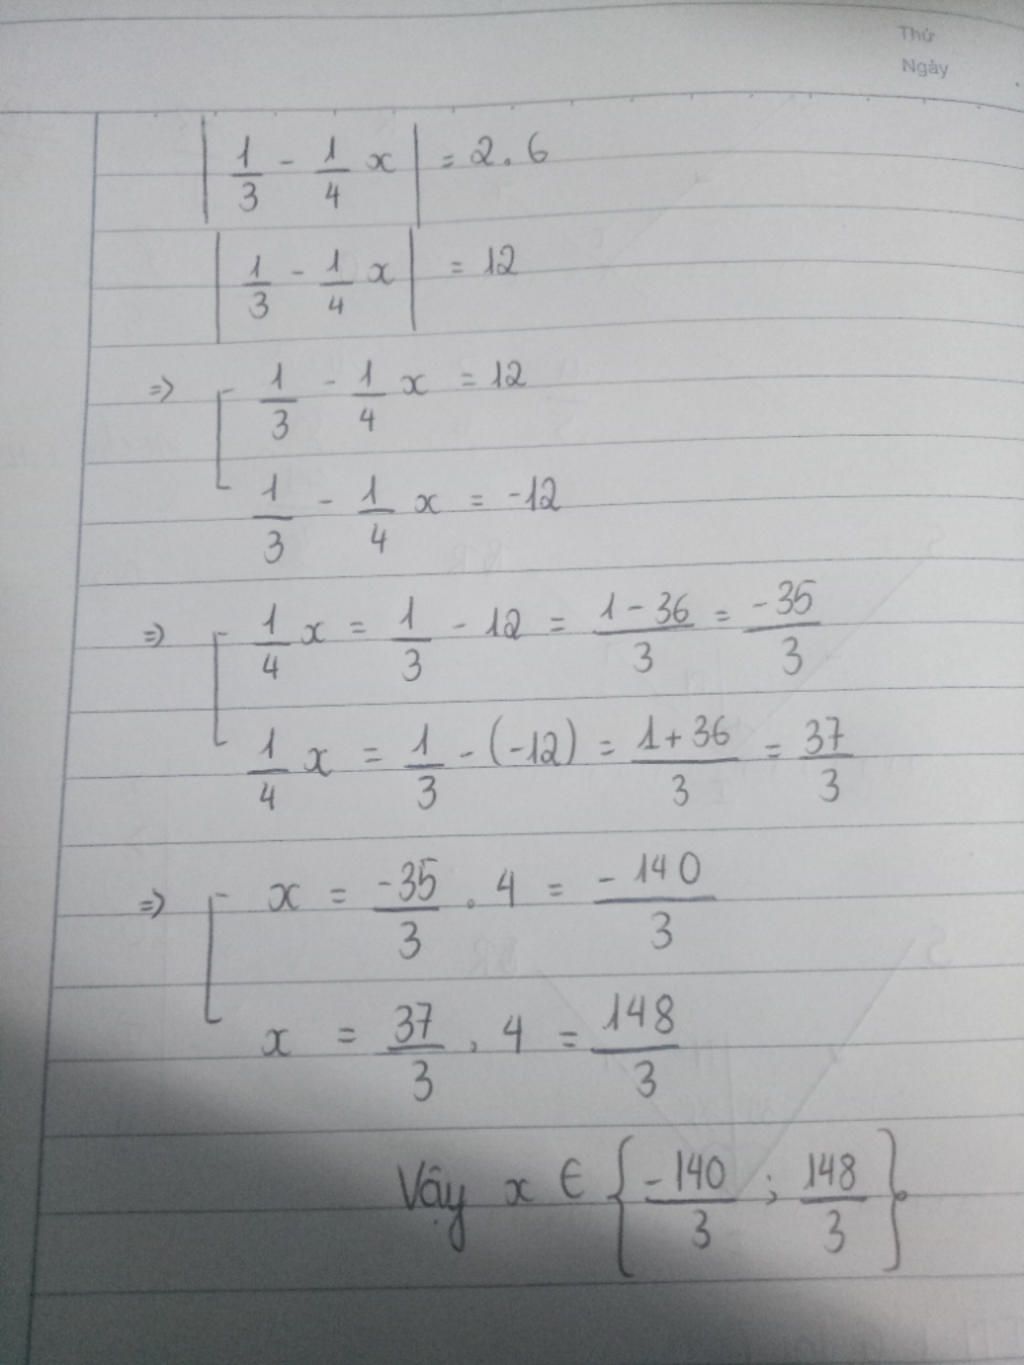 Thứ
Ngày
| 1/3 - 1/4 x | = 2.6
| 1/3 - 1/4 x | = 12
=> [ 1/3 - 1/4 x = 12
1/3 - 1/4 x = -12
=> [ 1/4 x = 1/3 - 12 = (1 - 36)/3 = -35/3
1/4 x = 1/3 - (-12) = (1 + 36)/3 = 37/3
=> [ x = -35/3 . 4 = -140/3
x = 37/3 . 4 = 148/3
Vậy x ∈ { -140/3 ; 148/3 }.